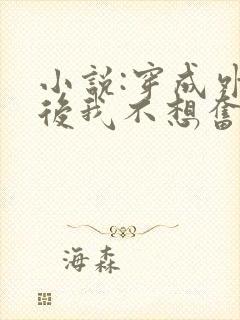 小説:穿成
後我不想奮
海森